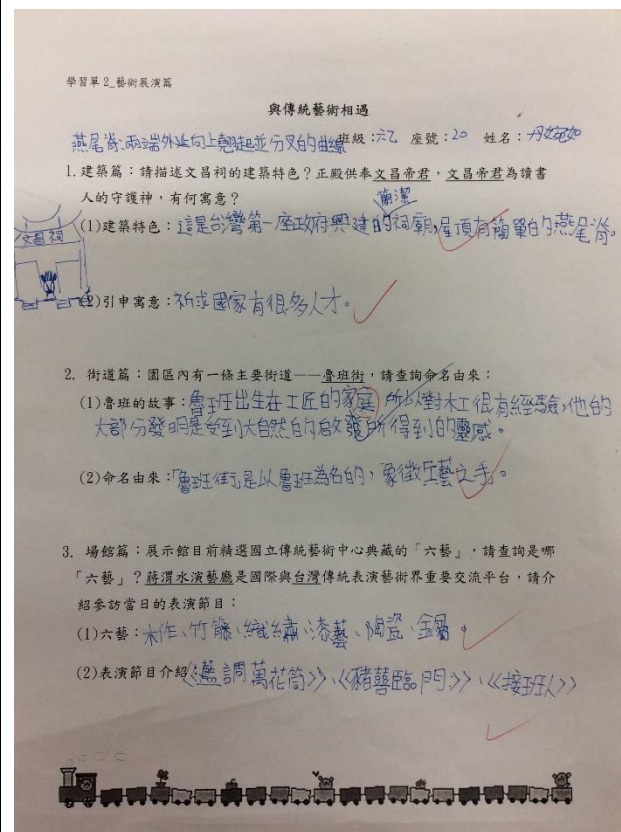 學習單2_藝術展演篇
與傳統藝術相遇
燕尾脊:兩端外延向上翹起並分叉的曲線 班級:六乙 座號:20 姓名:
1.建築篇:請描述文昌祠的建築特色?正殿供奉文昌帝君,文昌帝君為讀書
人的守護神,有何寓意?
簡潔
(1)建築特色:這是台灣第一座政府興建的祠廟,屋頂有簡單的燕尾脊。
文昌祠
(2)引申寓意:祈求國家有很多人才。
2. 街道篇:園區內有一條主要街道——魯班街,請查詢命名由來:
(1)魯班的故事:魯班出生在工匠的家庭 所以對木工很有經驗,他的
大部分發明是受到大自然的啟發所得到的靈感。
(2)命名由來:「魯班街」是以魯班為名的,象徵工藝之手。
3. 場館篇:展示館目前精選國立傳統藝術中心典藏的「六藝」,請查詢是哪
「六藝」?蔣渭水演藝廳是國際與台灣傳統表演藝術界重要交流平台,請介
紹參訪當日的表演節目:
(1)六藝:木作、竹籐、織繡、漆藝、陶瓷、金屬。
(2)表演節目介紹《藍調萬花筒》、《豬囍臨門》、《接班人》